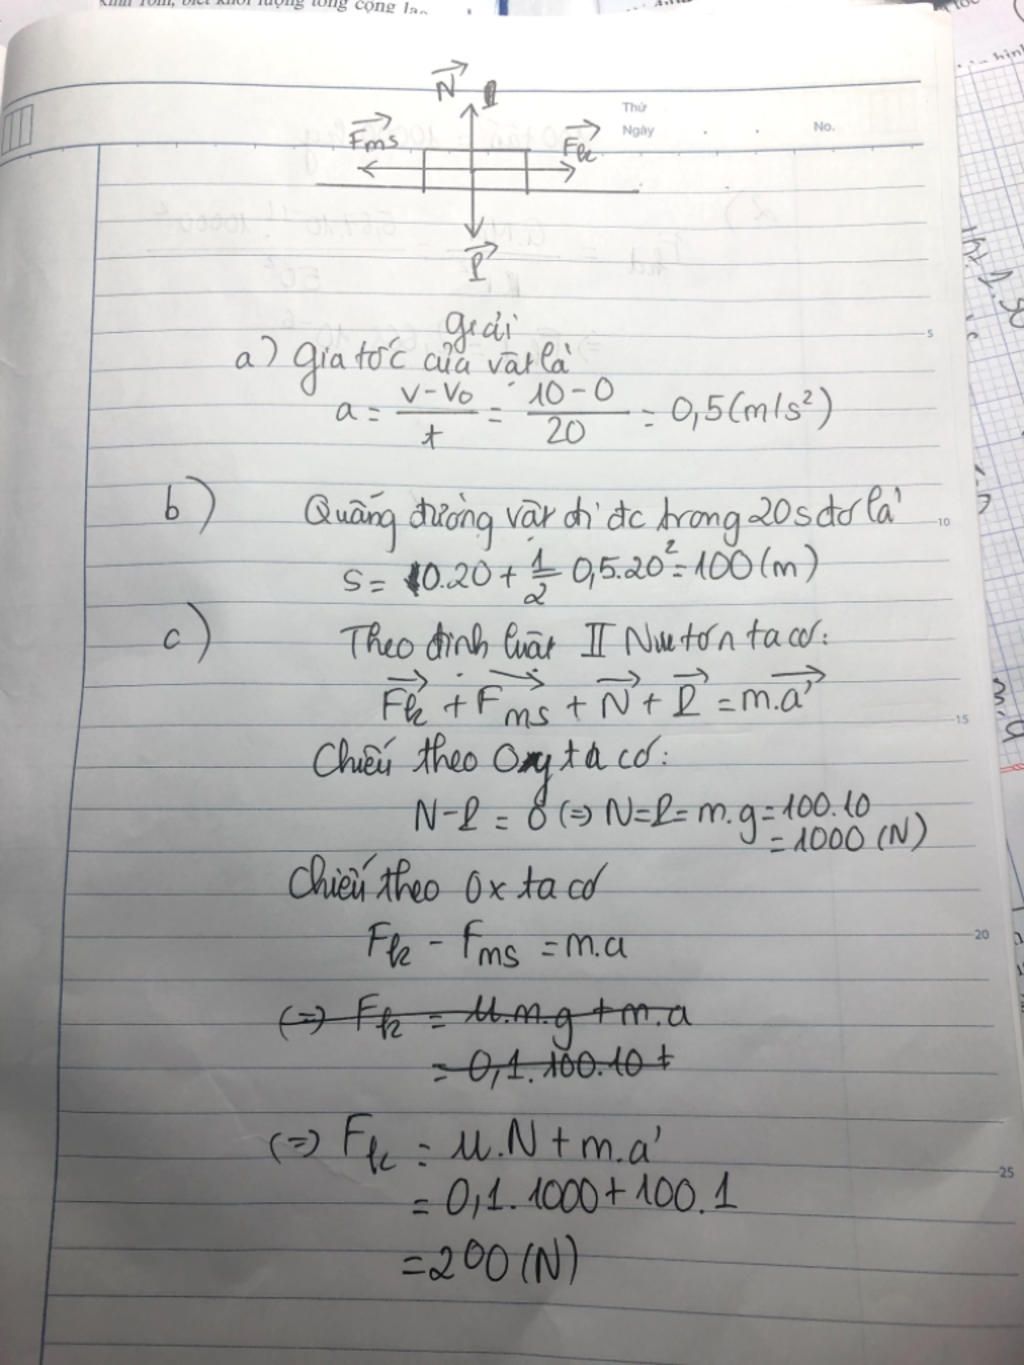 kinh 10m, biết khối lượng tổng cộng
N
Thứ
Ngày
No.
Fms
Fk
P
Giải
5
a) Gia tốc của vật là
a = v-v₀/t = 10-0/20 = 0,5(m/s²)
b) Quãng đường vật đi đc trong 20s đó là
10
S = 10.20 + 1/2 0,5.20² = 100(m)
c) Theo định luật II Niutơn ta có:
Fk + Fms + N + P = m.a
15
Chiếu theo Oy ta có:
N-P = 0 (=) N=P= m.g = 100.10
= 1000 (N)
Chiếu theo Ox ta có
20
Fk - Fms = m.a
(=) Fk = μ.m.g + m.a
= 0,1.100.10 +
(=) Fk = μ.N + m.a
25
= 0,1.1000 + 100.1
= 200 (N)